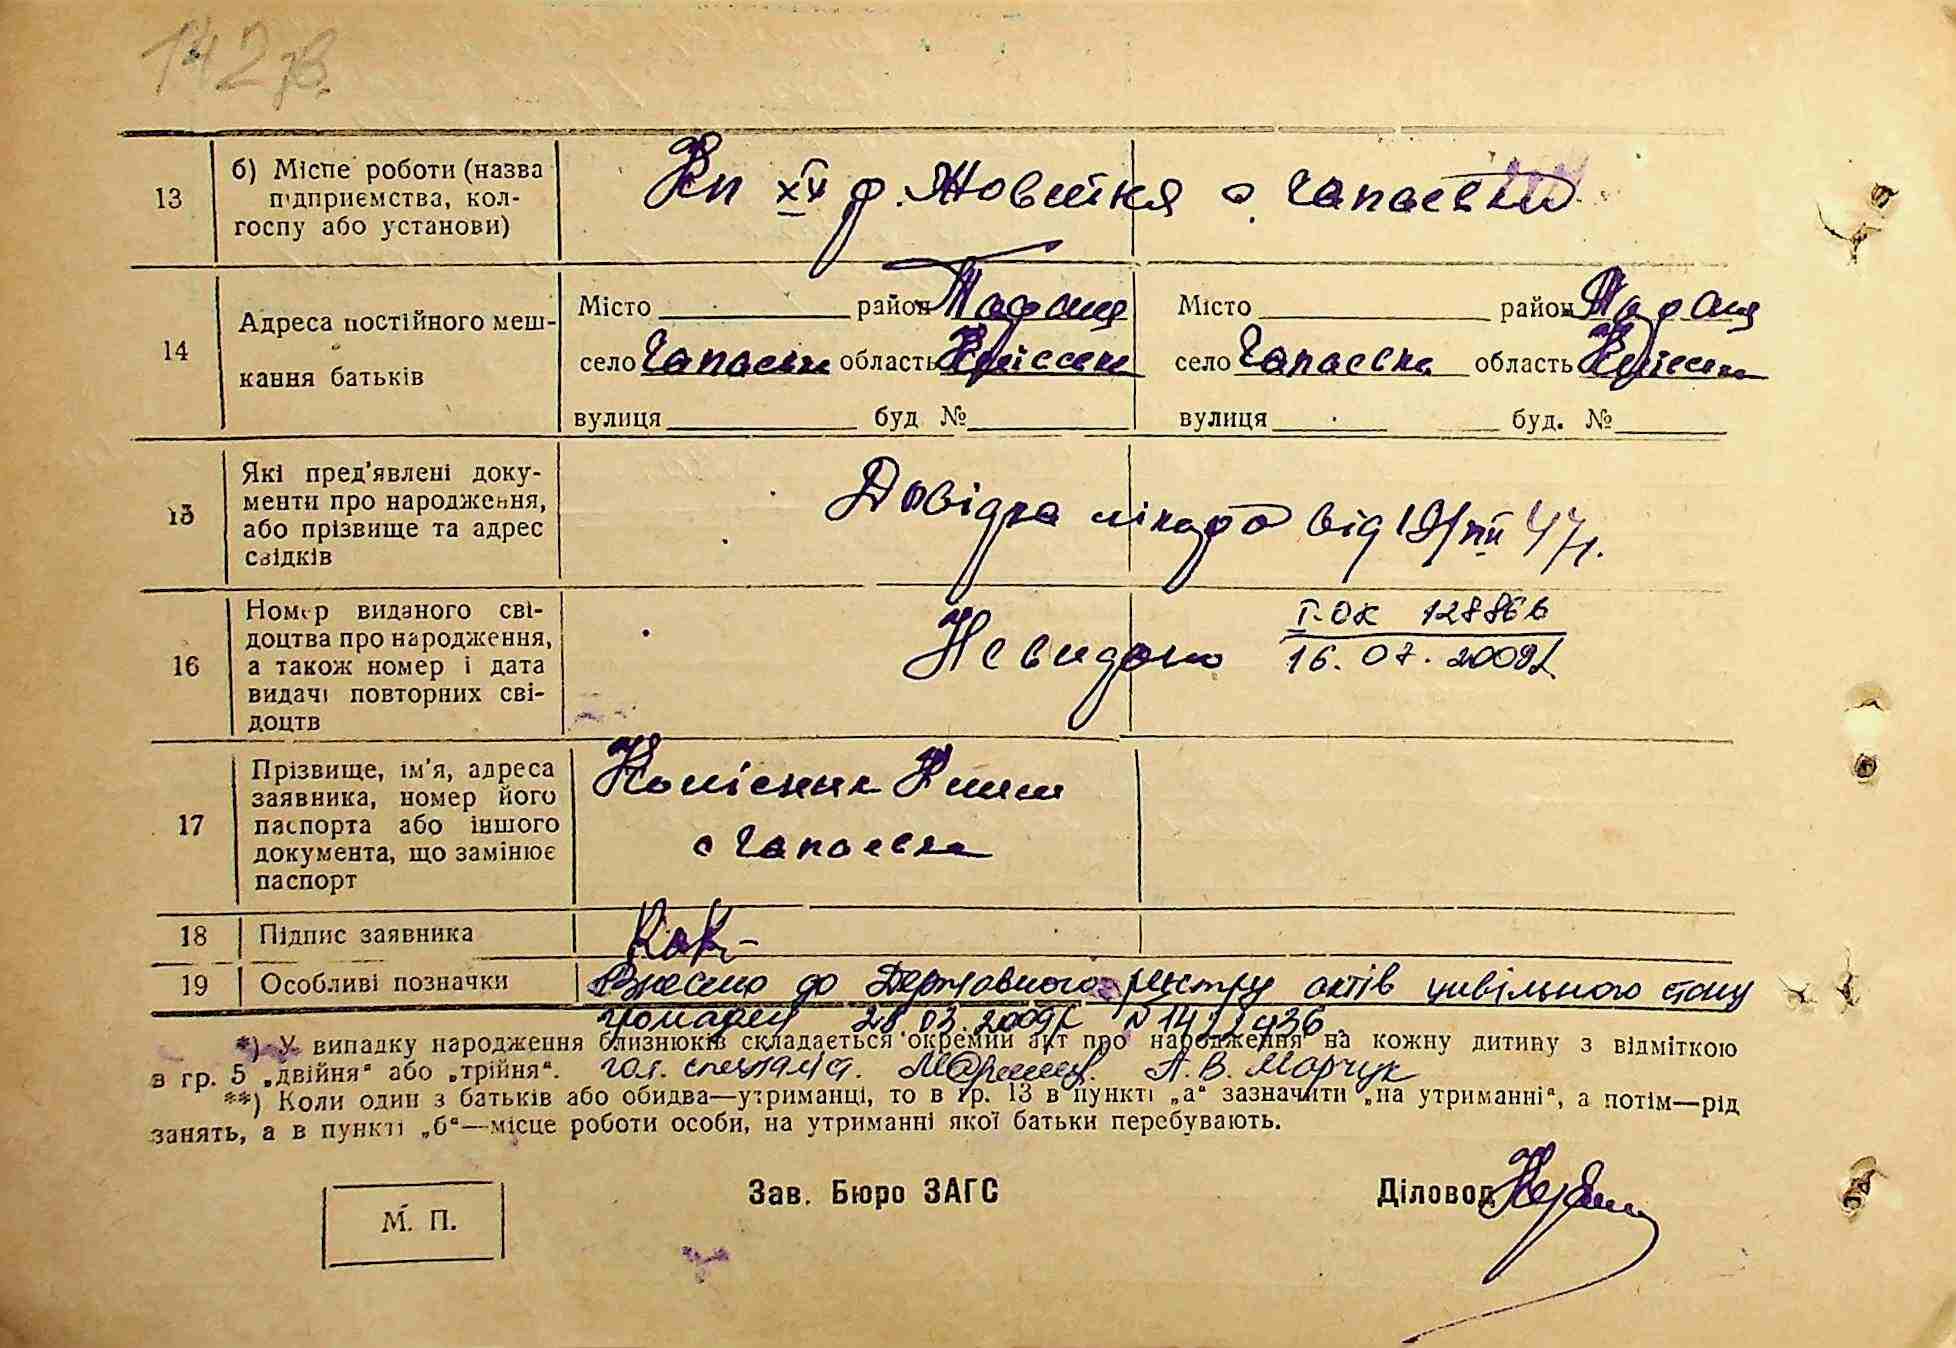 142 зв.
13
б) Місце роботи (назва
підприємства, кол-
госпу або установи)
Кп XV р. Жовтня с. Чапаєвки
14
Адреса постійного меш-
кання батьків
Місто район Таращ
село Чапаєвки область Київськ
вулиця буд №
Місто район Таращ
село Чапаєвка область Київськ
вулиця буд. №
15
Які пред'явлені доку-
менти про народження,
або прізвище та адрес
свідків
Довідка лікаря від 19/VII 47р.
16
Номер виданого сві-
доцтва про народження,
а також номер і дата
видачі повторних сві-
доцтв
Не видано
І-ОК 128866
16.07.2009р.
17
Прізвище, ім'я, адреса
заявника, номер його
паспорта або іншого
документа, що замінює
паспорт
Колісник
с Чапаєвка
18
Підпис заявника
19
Особливі позначки
Внесено до Державного реєстру актів цивільного стану
громадян 28.03.2009р. №1422936.
*) У випадку народження близнюків складається окремий акт про народження на кожну дитину з відміткою
в гр. 5 „двійня“ або „трійня“. гол. спеціаліст. А. В. Марчук
**) Коли один з батьків або обидва—утриманці, то в гр. 13 в пункті „а“ зазначити „на утриманні“, а потім—рід
занять, а в пункті „б“—місце роботи особи, на утриманні якої батьки перебувають.
М. П.
Зав. Бюро ЗАГС
Діловод